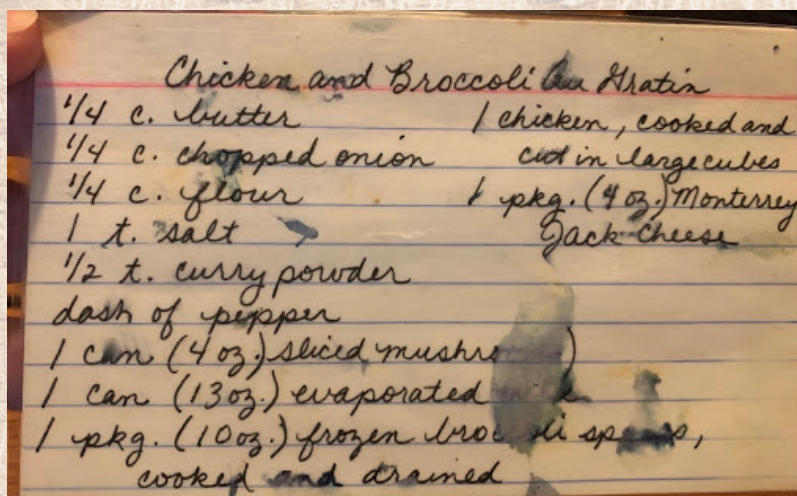 Chicken and Broccoli Au Gratin
1/4 c. butter
1/4 c. chopped onion
1/4 c. flour
1 t. salt
1/2 t. curry powder
dash of pepper
1 can (4 oz.) sliced mushrooms)
1 can (13 oz.) evaporated milk
1 pkg. (10 oz.) frozen broccoli spears,
cooked and drained
1 chicken, cooked and
cut in large cubes
1 pkg. (4 oz.) Monterrey
Jack Cheese